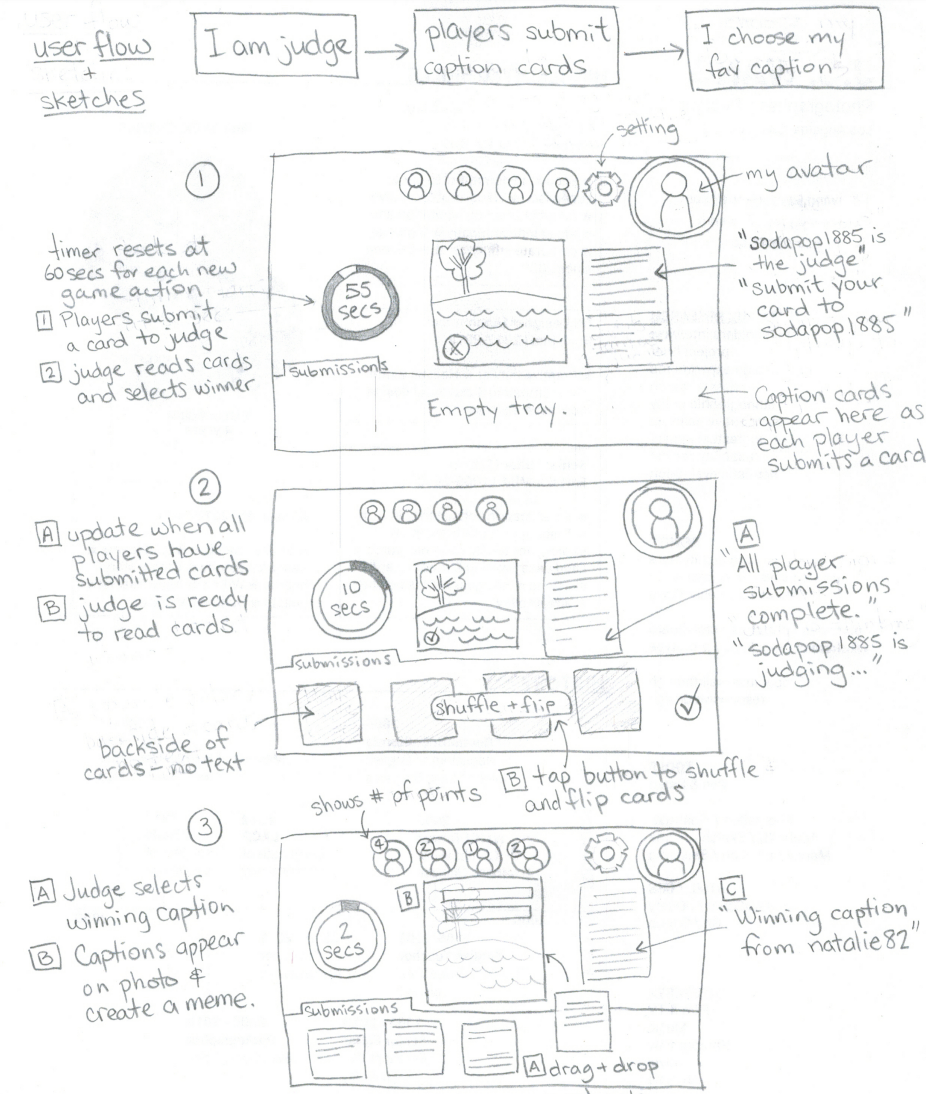 user flow
+
sketches
I am judge
players submit
caption cards
I choose my
fav caption
setting
1
my avatar
timer resets at
60 secs for each new
game action
1 Players submit
a card to judge
2 judge reads cards
and selects winner
55
secs
X
"sodapop1885 is
the judge"
"submit your
card to
sodapop1885"
submissions
Empty tray.
Caption cards
appear here as
each player
submits a card
2
A update when all
players have
submitted cards
B judge is ready
to read cards
10
secs
A
"All player
submissions
complete."
"sodapop1885 is
judging..."
submissions
shuffle + flip
backside of
cards - no text
B tap button to shuffle
and flip cards
3
shows # of points
4
2
1
2
A Judge selects
winning caption
B Captions appear
on photo &
create a meme.
2
secs
B
C
"Winning caption
from natalie82"
submissions
A drag + drop